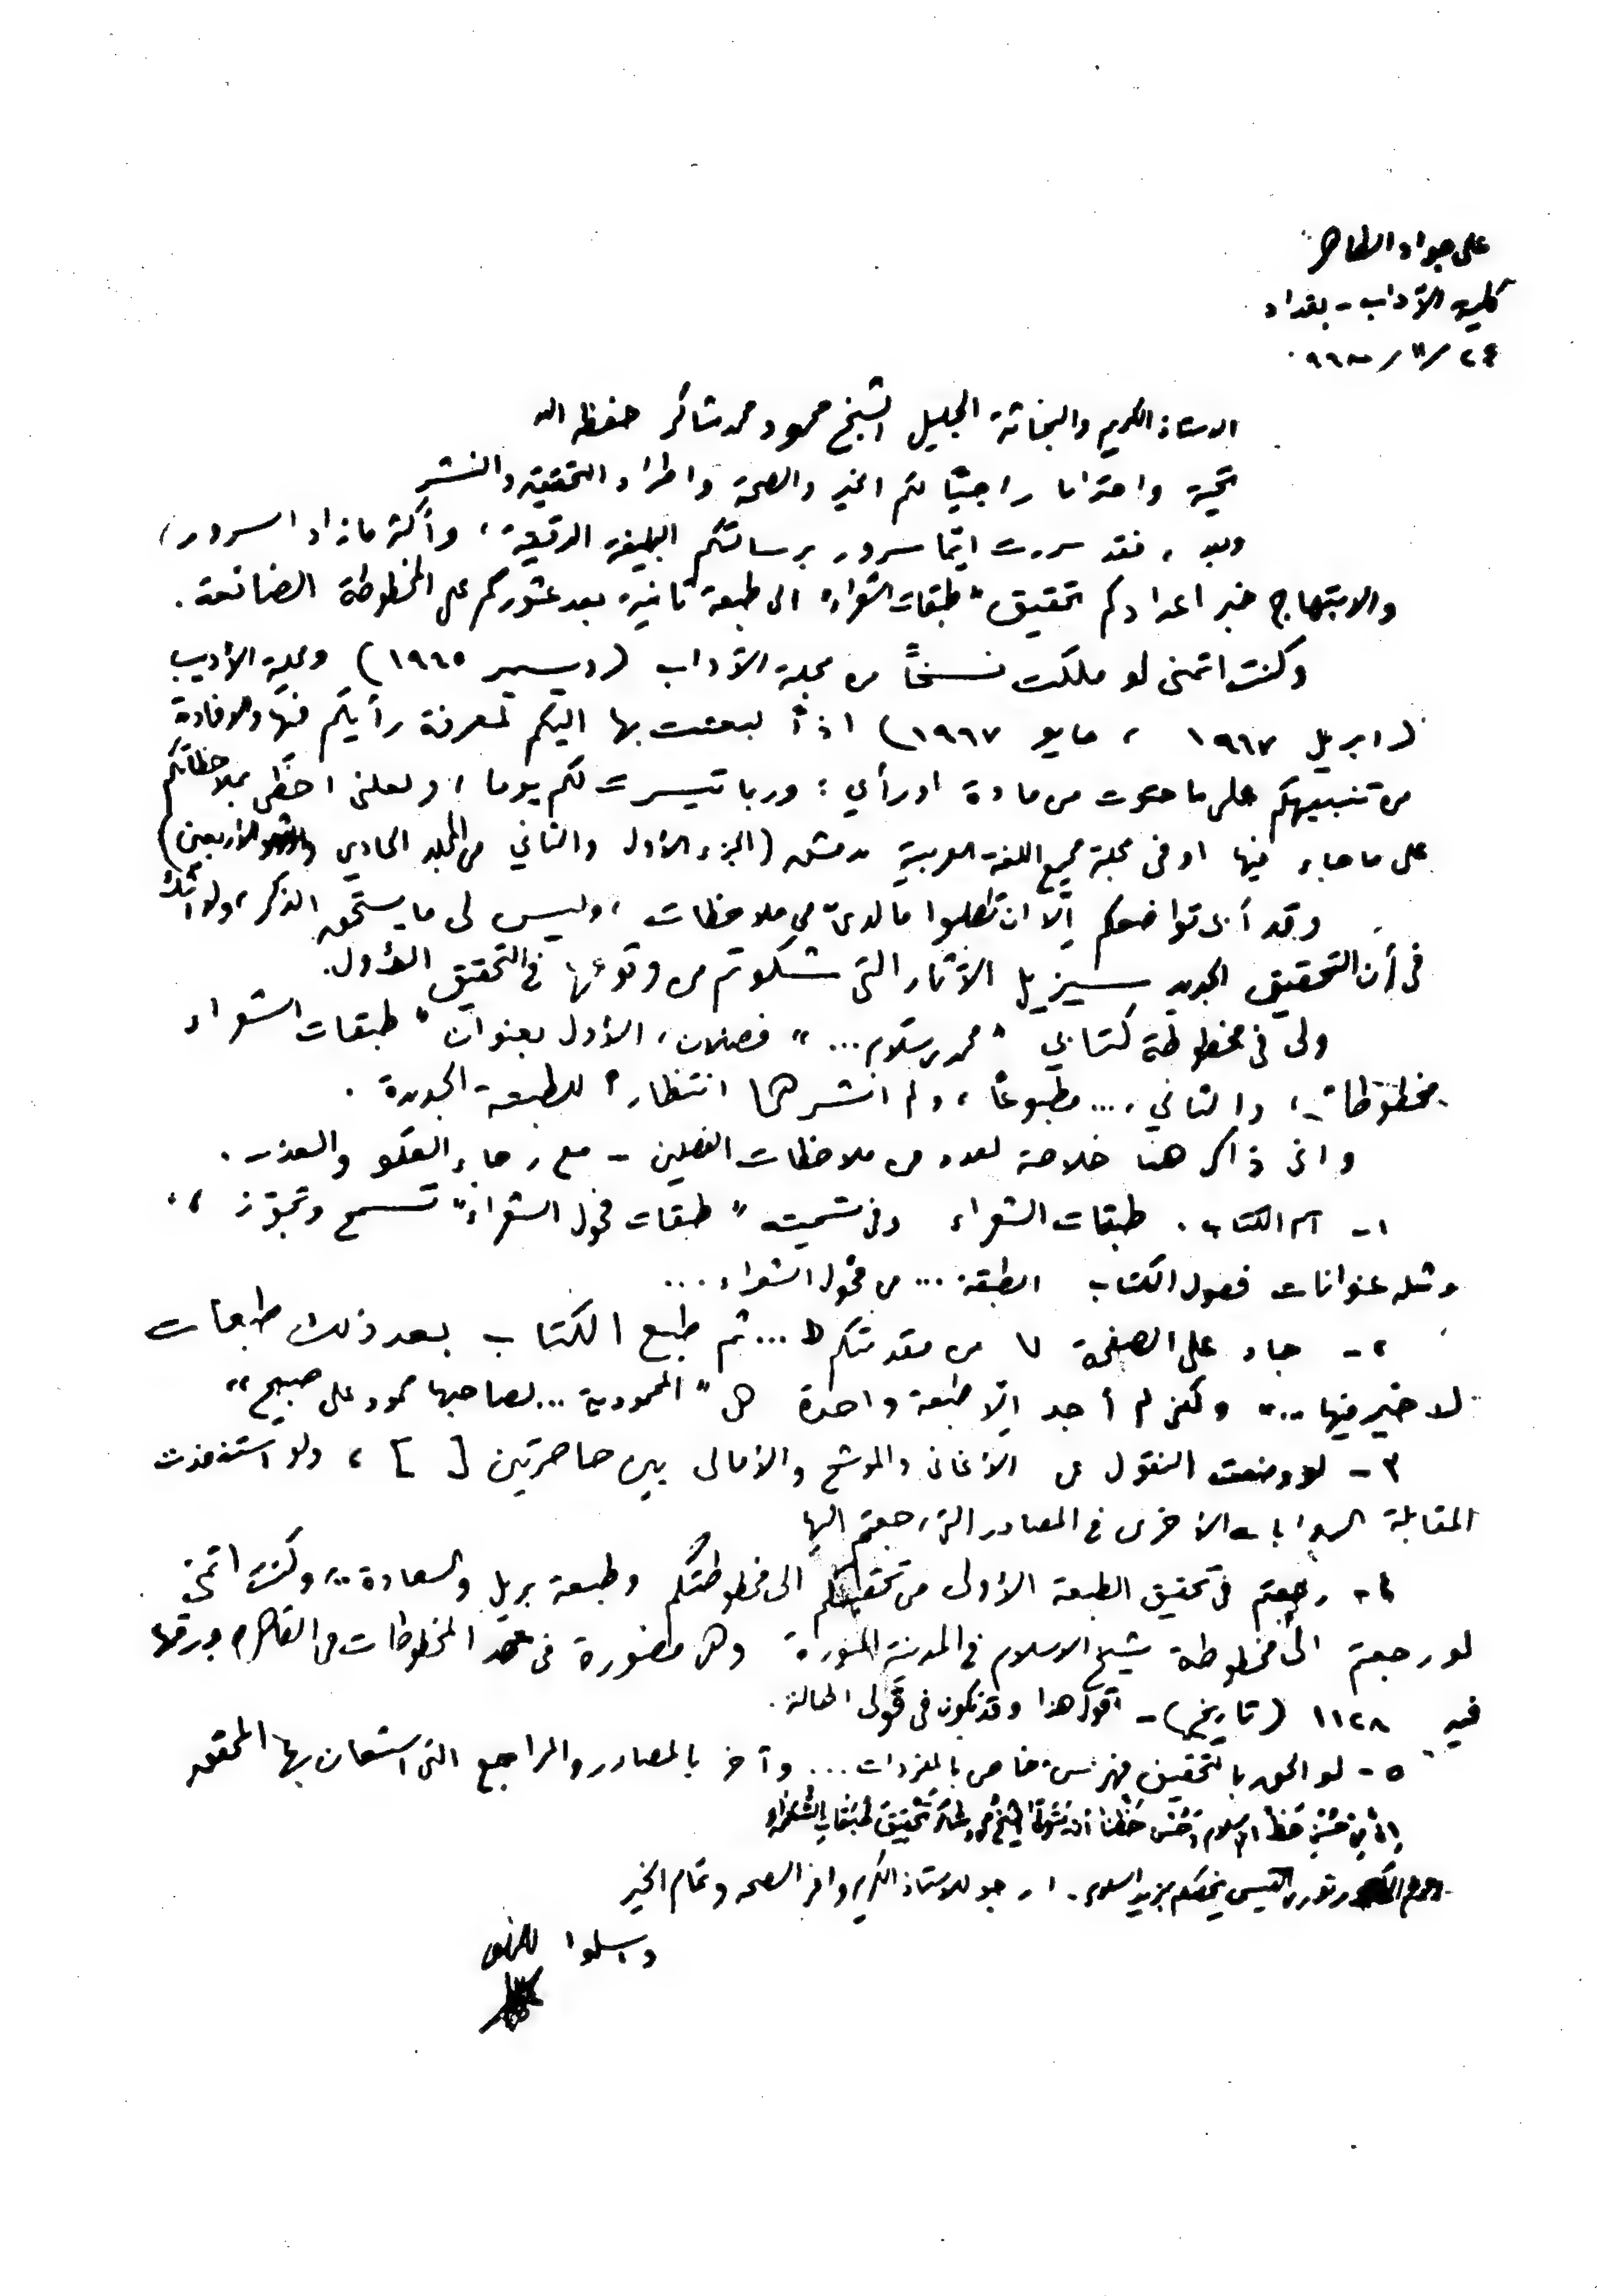 علي جواد الطاهر
كلية الآداب - بغداد
٢٤ / ١١ / ٩٦٨
الاستاذ الكريم والبحاثة الجليل الشيخ محمود محمد شاكر حفظه الله
تحية واحتراما راجيًا لكم الخير والصحة واطراد التحقيق والنشر
وبعد ، فقد سررت ايما سرور برسالتكم البليغة الرقيقة ، وأكثر ما زاد السرور ،
والابتهاج خبر اعدادكم تحقيق "طبقات الشعراء" الى طبعة ثانية بعد عثوركم على المخطوطة الضائعة .
وكنت اتمنى لو ملكت نسخًا من مجلة الآداب (ديسمبر ١٩٦٥) ومجلة الأديب
(ابريل ١٩٦٧ ، مايو ١٩٦٧) اذًا لبعثت بها اليكم لمعرفة رأيكم فيها والافادة
من تنبيهكم على ما حوت من مادة اورأي : وربما تيسرت لكم يوما ، ولعلني احظى بملاحظاتكم
على ما جاء فيها او في مجلة مجمع اللغة العربية بدمشق (الجزء الأول والثاني من المجلد الحادي والأربعين)
وقد أبى تواضعكم إلّا ان تطلبوا ما لديّ من ملاحظات ، وليس لي ما يستحق الذكر ، ولا أشك
في أن التحقيق الجديد سيزيل الآثار التي شكوتم من وقوعها في التحقيق الأول .
ولي في مخطوطة كتابي "محمد بن سلام ..." فصلان ، الأول بعنوان "طبقات الشعراء
مخطوطا" ، والثاني "... مطبوعًا ، ولم انشرهما انتظارًا للطبعة الجديدة .
واني ذاكر هنا خلاصة لعدد من ملاحظات الفصلين - مع رجاء العفو والعذر .
١ - اسم الكتاب . طبقات الشعراء وفي تسميته "طبقات فحول الشعراء" تسمح وتجوّز ،
ومثله عنوانات فصول الكتاب الطبقة ... من فحول الشعراء ...
٢ - جاء على الصفحة ٧ من مقدمتكم " ... ثم طبع الكتاب بعد ذلك طبعات
لا خير فيها ..." ولكني لم أجد إلّا طبعة واحدة هي "المحمودية ... لصاحبها محمود علي صبيح"
٣ - لو وضعت النقول عن الأغاني والموشح والأمالي بين حاصرتين [ ] ، ولو استنفدت
المقابلة الروايات الأخرى في المصادر التي رجعتم اليها
٤ - رجعتم في تحقيق الطبعة الأولى من تحقيقكم الى مخطوطتكم وطبعة بريل والسعادة .. ، وكنت اتمنى
لو رجعتم الى مخطوطة شيخ الاسلام في المدينة المنورة وهي مصورة في معهد المخطوطات في القاهرة ورقمها
فيه ١١٢٨ (تاريخ) - اقول هذا وقد تكون في قولي احالة .
٥ - لو الحق بالتحقيق فهرس خاص بالمفردات ... وآخر بالمصادر والمراجع التي استعان بها المحقق
إنّ من حُسْنِ حَظّ ابن سلام وحُسْن حَظّنا أنْ يتولّى الشيخ محمود شاكر تحقيق طبقات الشعراء
نوري القيسي يخصكم بمزيد السلام . ارجو للاستاذ الكريم وافر الصحة وتمام الخير
واسلموا للمخلص